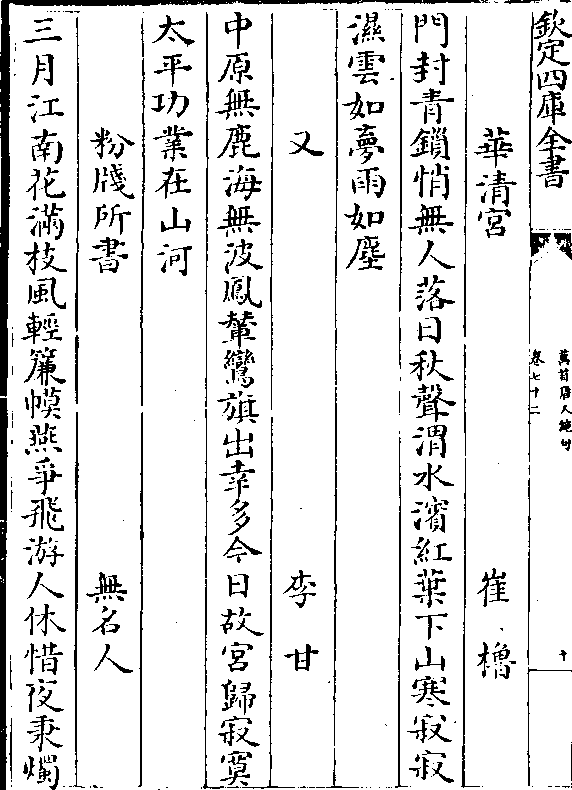 欽定四庫全書
萬首唐人絶句
卷七十二
十
華清宮 崔櫓
門封青鎖悄無人落日秋聲渭水濱紅葉下山寒寂寂
濕雲如夢雨如塵
又 李甘
中原無鹿海無波鳳輦鸞旗出幸多今日故宮歸寂寞
太平功業在山河
粉牋所書 無名人
三月江南花滿枝風輕簾幙燕爭飛游人休惜夜秉燭